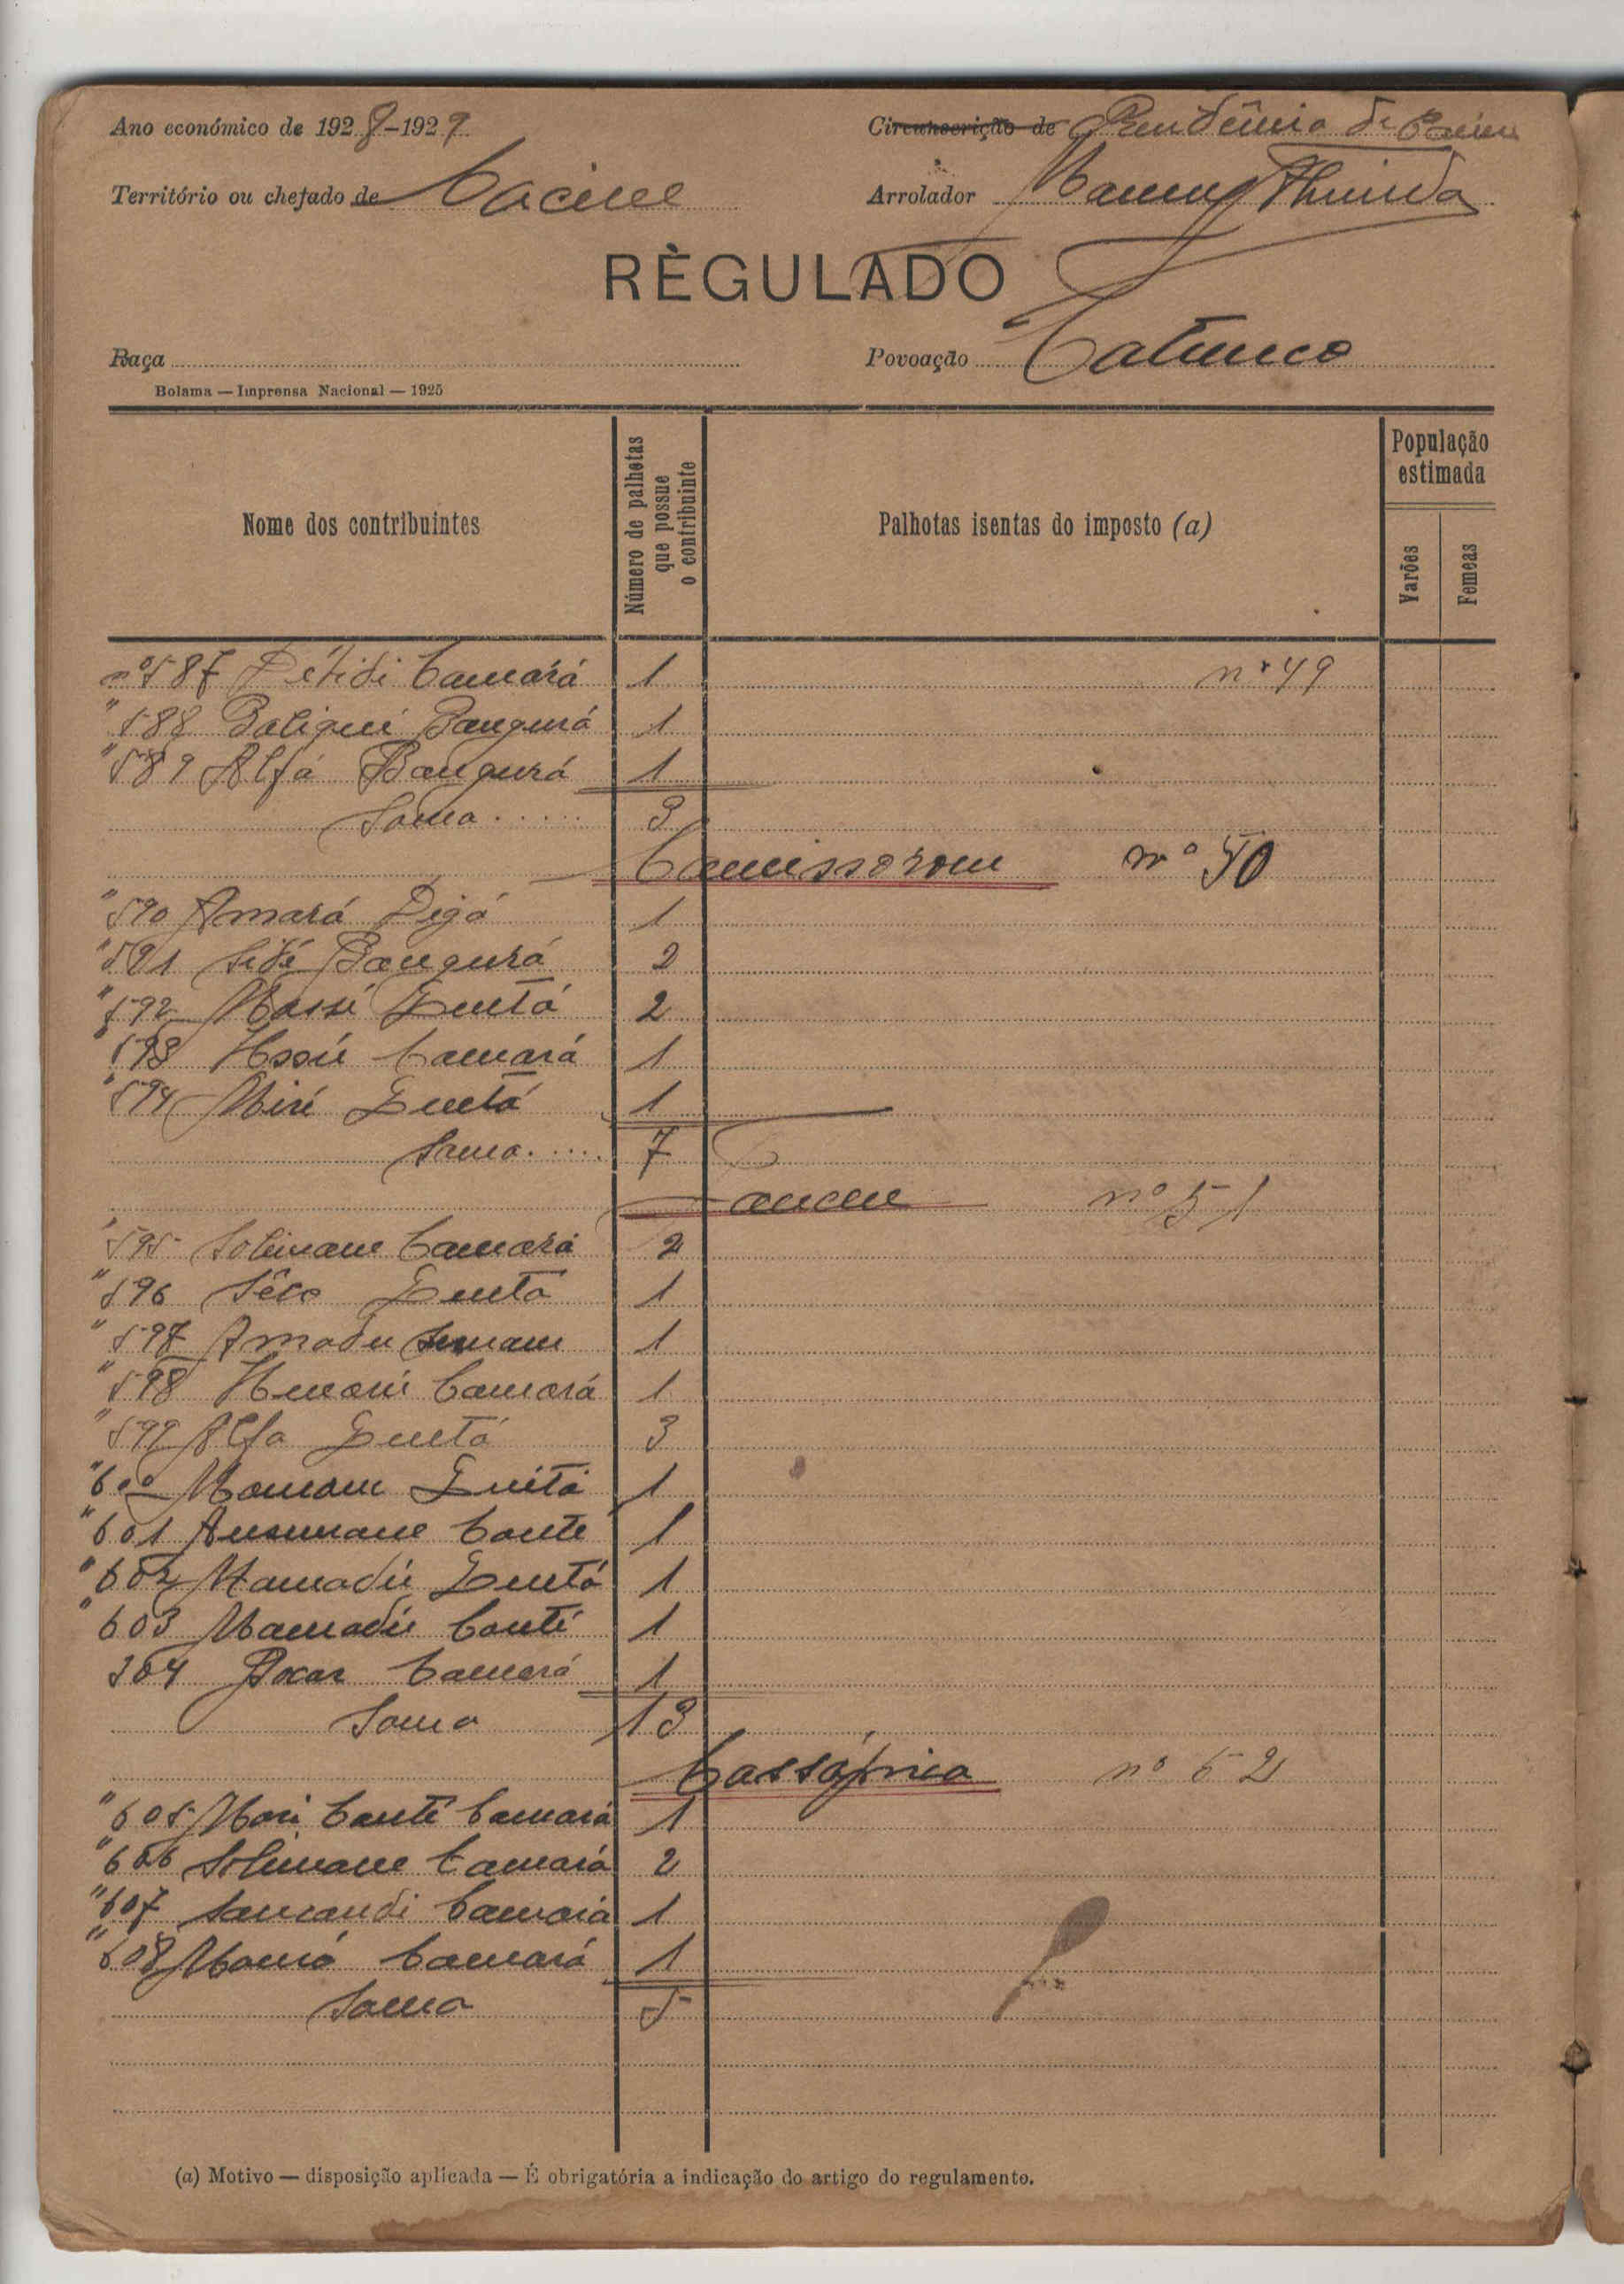 Ano económico de 1928-1929
Circunscrição de Residência de Cacine
Território ou chefado de Cacine
Arrolador Almeida
RÈGULADO
Raça
Povoação Catunco
Bolama — Imprensa Nacional — 1925
Nome dos contribuintes
Número de palhotas que possue o contribuinte
Palhotas isentas do imposto (a)
População estimada
Varões
Femeas
nº 587 Camará 1 nº 49
" 588 Baliqui Bangurá 1
" 589 Alfá Bangurá 1
Soma ..... 3
Camissorom nº 50
" 590 Amará Digá 1
" 591 Sidé Bangurá 2
" 592 Massé Quetá 2
" 593 Camará 1
" 594 Miré Quetá 1
Soma ..... 7
nº 51
" 595 Solimane Camará 2
" 596 Sêco Quetá 1
" 597 Amadu 1
" 598 Camará 1
" 599 Alfa Quetá 3
" 600 Quitá 1
" 601 Ansumane Conte 1
" 602 Mamadú Quetá 1
" 603 Mamadú Conté 1
304 Camará 1
Soma 13
nº 52
" 605 Mori Conté Camará 1
" 606 Solimane Camará 2
" 607 Camará 1
" 608 Camará 1
Soma 5
(a) Motivo — disposição aplicada — É obrigatória a indicação do artigo do regulamento.